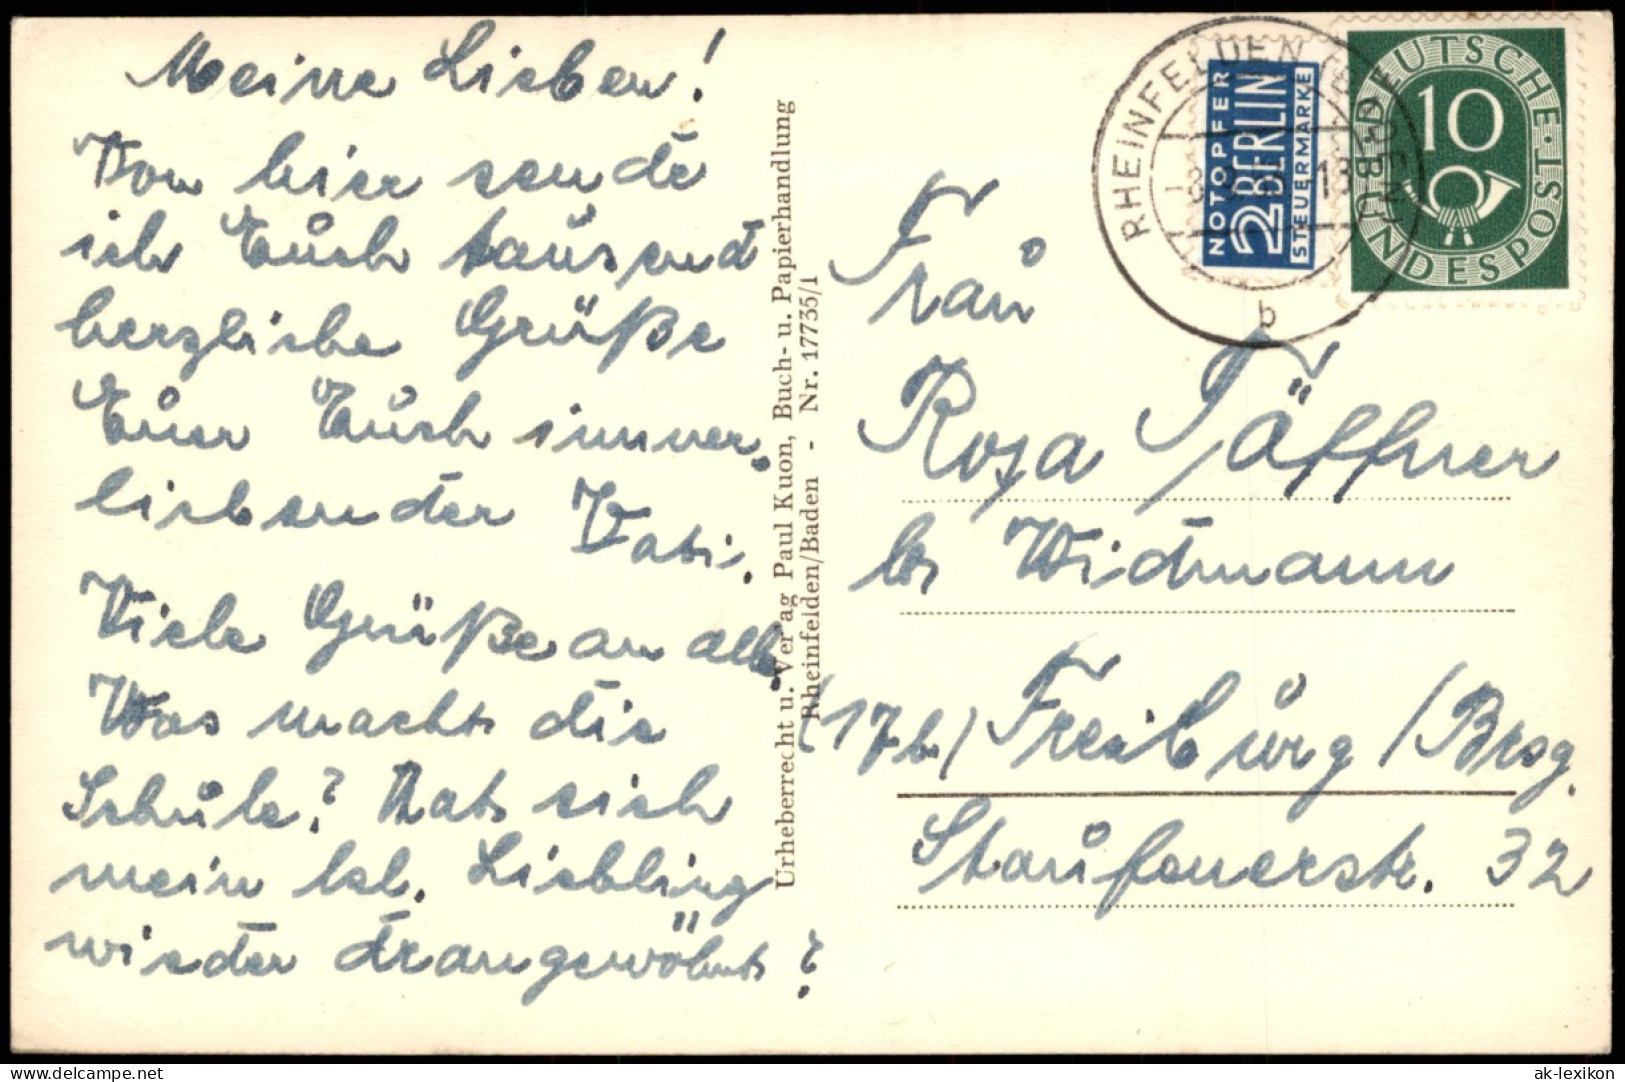 Meine Lieben!
Von hier sende
ich Euch tausend
herzliche Grüße
Euer Euch immer
liebender Vati.
Viele Grüße an alle.
Was macht die
Schule? Hat sich
mein lbl. Liebling
wieder drangewöhnt?
Urheberrecht u. Verlag Paul Kuon, Buch- u. Papierhandlung
Rheinfelden/Baden - Nr. 17735/1
RHEINFELDEN
b
NOTOPFER
2 BERLIN
STEUERMARKE
DEUTSCHE BUNDESPOST
10
Frau
Rosa Täffner
bei Widmann
(17b) Freiburg/Brsg.
Staufenerstr. 32
akpool.de
ak-lexikon